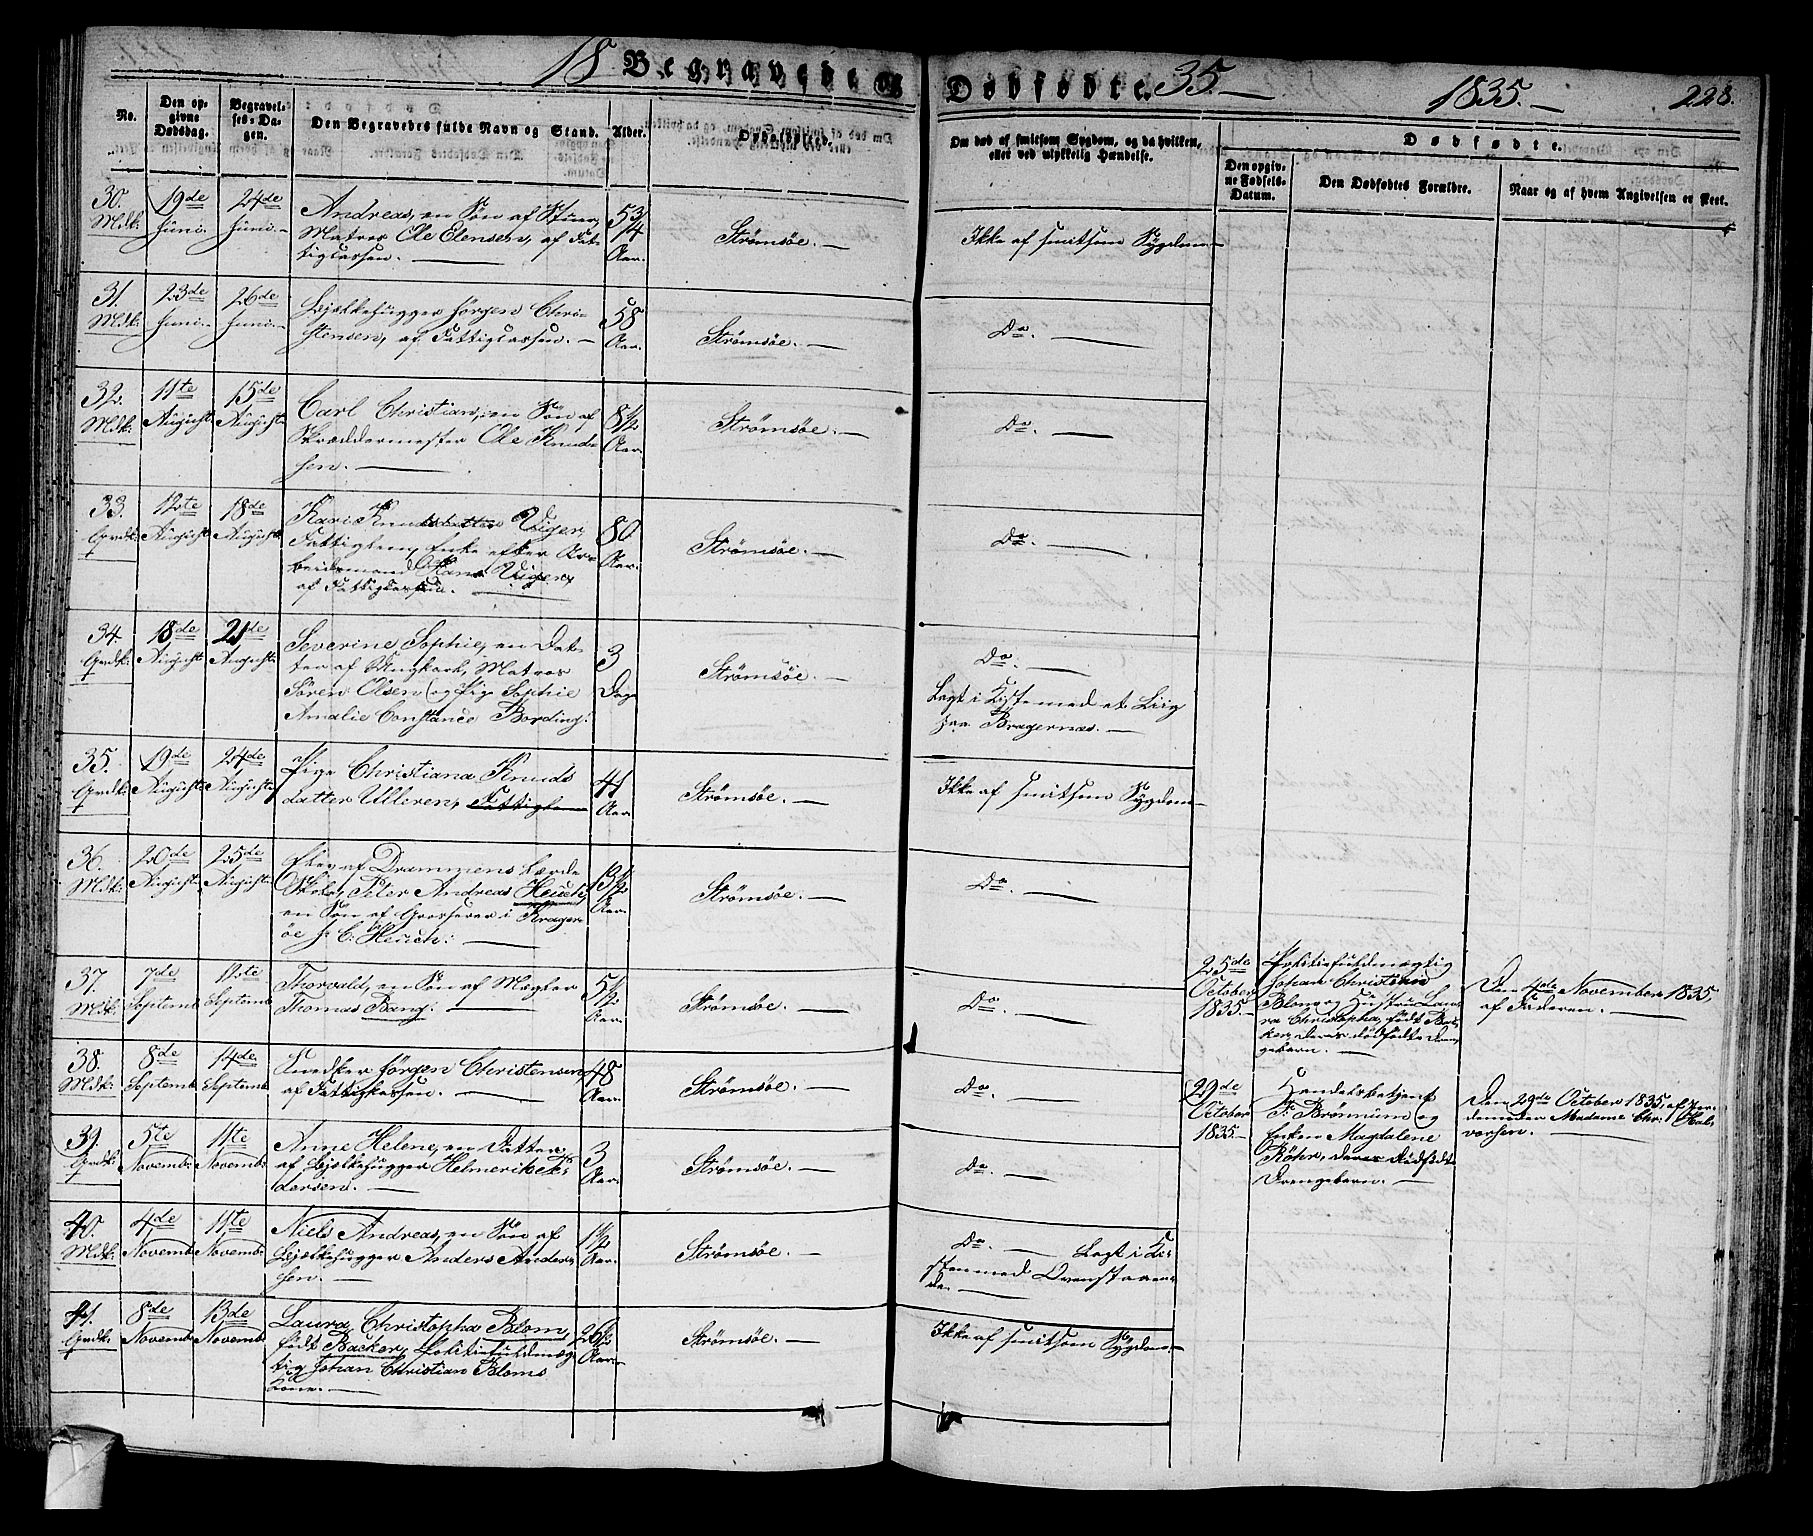 18 Begravede og Dødfødte. 35.
1835.
228.
No.
Den opgivne Dødsdag.
Begravelses-Dagen.
Den Begravedes fulde Navn og Stand.
Alder.
Opholdssted.
Om død af smitsom Sygdom, og da hvilken, eller ved ulykkelig Hændelse.
Dødfødte.
Den opgivne Fødsels-Datum.
Den Dødfødtes Forældre.
Naar og af hvem Angivelsen er skeet.
30. Mdk:
19de Juni.
24de Juni.
Andreas, en Søn af
Matros Ole Elensen, af Fat-
tigcassen.
5 3/4 Aar.
Strømsøe.
Ikke af smitsom Sygdom.
31. Mdk:
23de Juni.
26de Juni.
Bjelkehugger Jørgen Chri-
stensen, af Fattigcassen.
58 Aar.
Strømsøe.
Do.
32. Mdk:
11te August.
15de August.
Carl Christian, en Søn af
Skræddermester Ole Knud-
sen.
8 1/2 Aar.
Strømsøe.
Do.
33. Qvdk:
12te August.
18de August.
Kari Knudsdatter Viger,
Fattiglem, Enke efter Ar-
beidsmand Hans Viger,
af Fattigkassen.
80. Aar.
Strømsøe.
Do.
34. Qvdk:
18de August.
21de August.
Severine Sophie, en Dat-
ter af Ungkarl, Matros
Søren Olsen og Pige Sophie
Amalie Constance Bording:
3 Dage
Strømsøe.
Do.
Lagt i Kiste med et Liig
paa Bragernæs.
35. Qvdk:
19de August.
24de August.
Pige Christiana Knuds
datter Ulleren, Fattiglem
41 Aar.
Strømsøe.
Ikke af smitsom Sygdom.
36. Mdk:
20de August.
25de August.
Elev af Drammens Lærde
Skole, Peter Andreas Heuch,
en Søn af Grosserer i Krager-
øe J. C: Heuch:
13 1/2 Aar.
Strømsøe.
Do.
37. Mdk:
7de Septemb.
12te Septemb.
Thorvald, en Søn af Mægler
Thomas Bang:
5 1/2 Aar.
Strømsøe.
Do.
25de October 1835.
Politiefuldmægtig
Johan Christian
Blom og Hustru Lau-
ra Christopha, født Bac-
ker, deres dødfødte Dren-
gebarn.
Den 4de November 1835,
af Faderen.
38. Mdk:
8de Septemb.
14de Septemb.
Snedker Jørgen Christensen
af Fattigkassen.
48 Aar.
Strømsøe.
Do.
29de October 1835.
Handelsbetjent
F. Brønnum og
Enken Magdalene
Röhr, deres dødfødte
Drengebarn.
Den 29de October 1835, af Jor-
demoder Madame Chr: Hal-
vorsen.
39. Qvdk:
5te Novemb.
11te Novemb.
Anne Helene, en Datter
af Bjelkehugger Helmerik Pe-
dersen.
3 Aar.
Strømsøe.
Do.
40. Mdk:
4de Novemb.
11te Novemb.
Niels Andreas, en Søn af
Bjelkehugger Anders Ander-
sen.
1 1/2 Aar.
Strømsøe.
Do. Lagt i Ki-
sten med Ovenstaaen-
de.
41. Qvdk:
8de Novemb.
13de Novemb.
Laura Christopha Blom,
født Backer, Politiefuldmæg-
tig Johan Christian Bloms
Kone.
26 1/2 Aar.
Strømsøe.
Ikke af smitsom Sygdom.